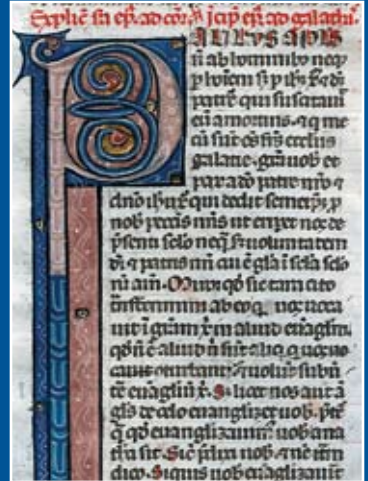 Explic̄ ep̄l ad cor̄. ⁊ īcip̄ ep̄l ad galathas.
PAULUS APLS
n̄ ab hominib⁊ neq;
p hoīem s; p ih̄m ⁊ dm̄
patrē qui suscitauit
eū a mortuis. ⁊ q me
cū sūt oēs frs̄ eccliis
galatie. grā uob et
pax a dō patre nr̄o ⁊
dn̄o ih̄u x̄ qui dedit semetip̄ p
nob peccīs nr̄is ut eriperet nos de
p̄senti sclo neq̄ uoluntatem
dī ⁊ patris nr̄i cui ē gl̄a ī scl̄a sclo
rū am̄. Miror qd̄ sic tam cito
ab eo q uos uoca
uit ī grām x̄m in aliud euāglm̄.
qd̄ n̄ ē aliud n̄ sūt aliq q uos
⁊ uolūt subu
tē euāgliū x̄. S; licet nos aut ā
gls̄ de celo euanglizet uob.
q̄ qd euanglizauim⁹ uob ana
thā sit. Sic̄ p̄dixi uob ⁊ nc̄ itm̄
dico. Siquis uob euāglizauit